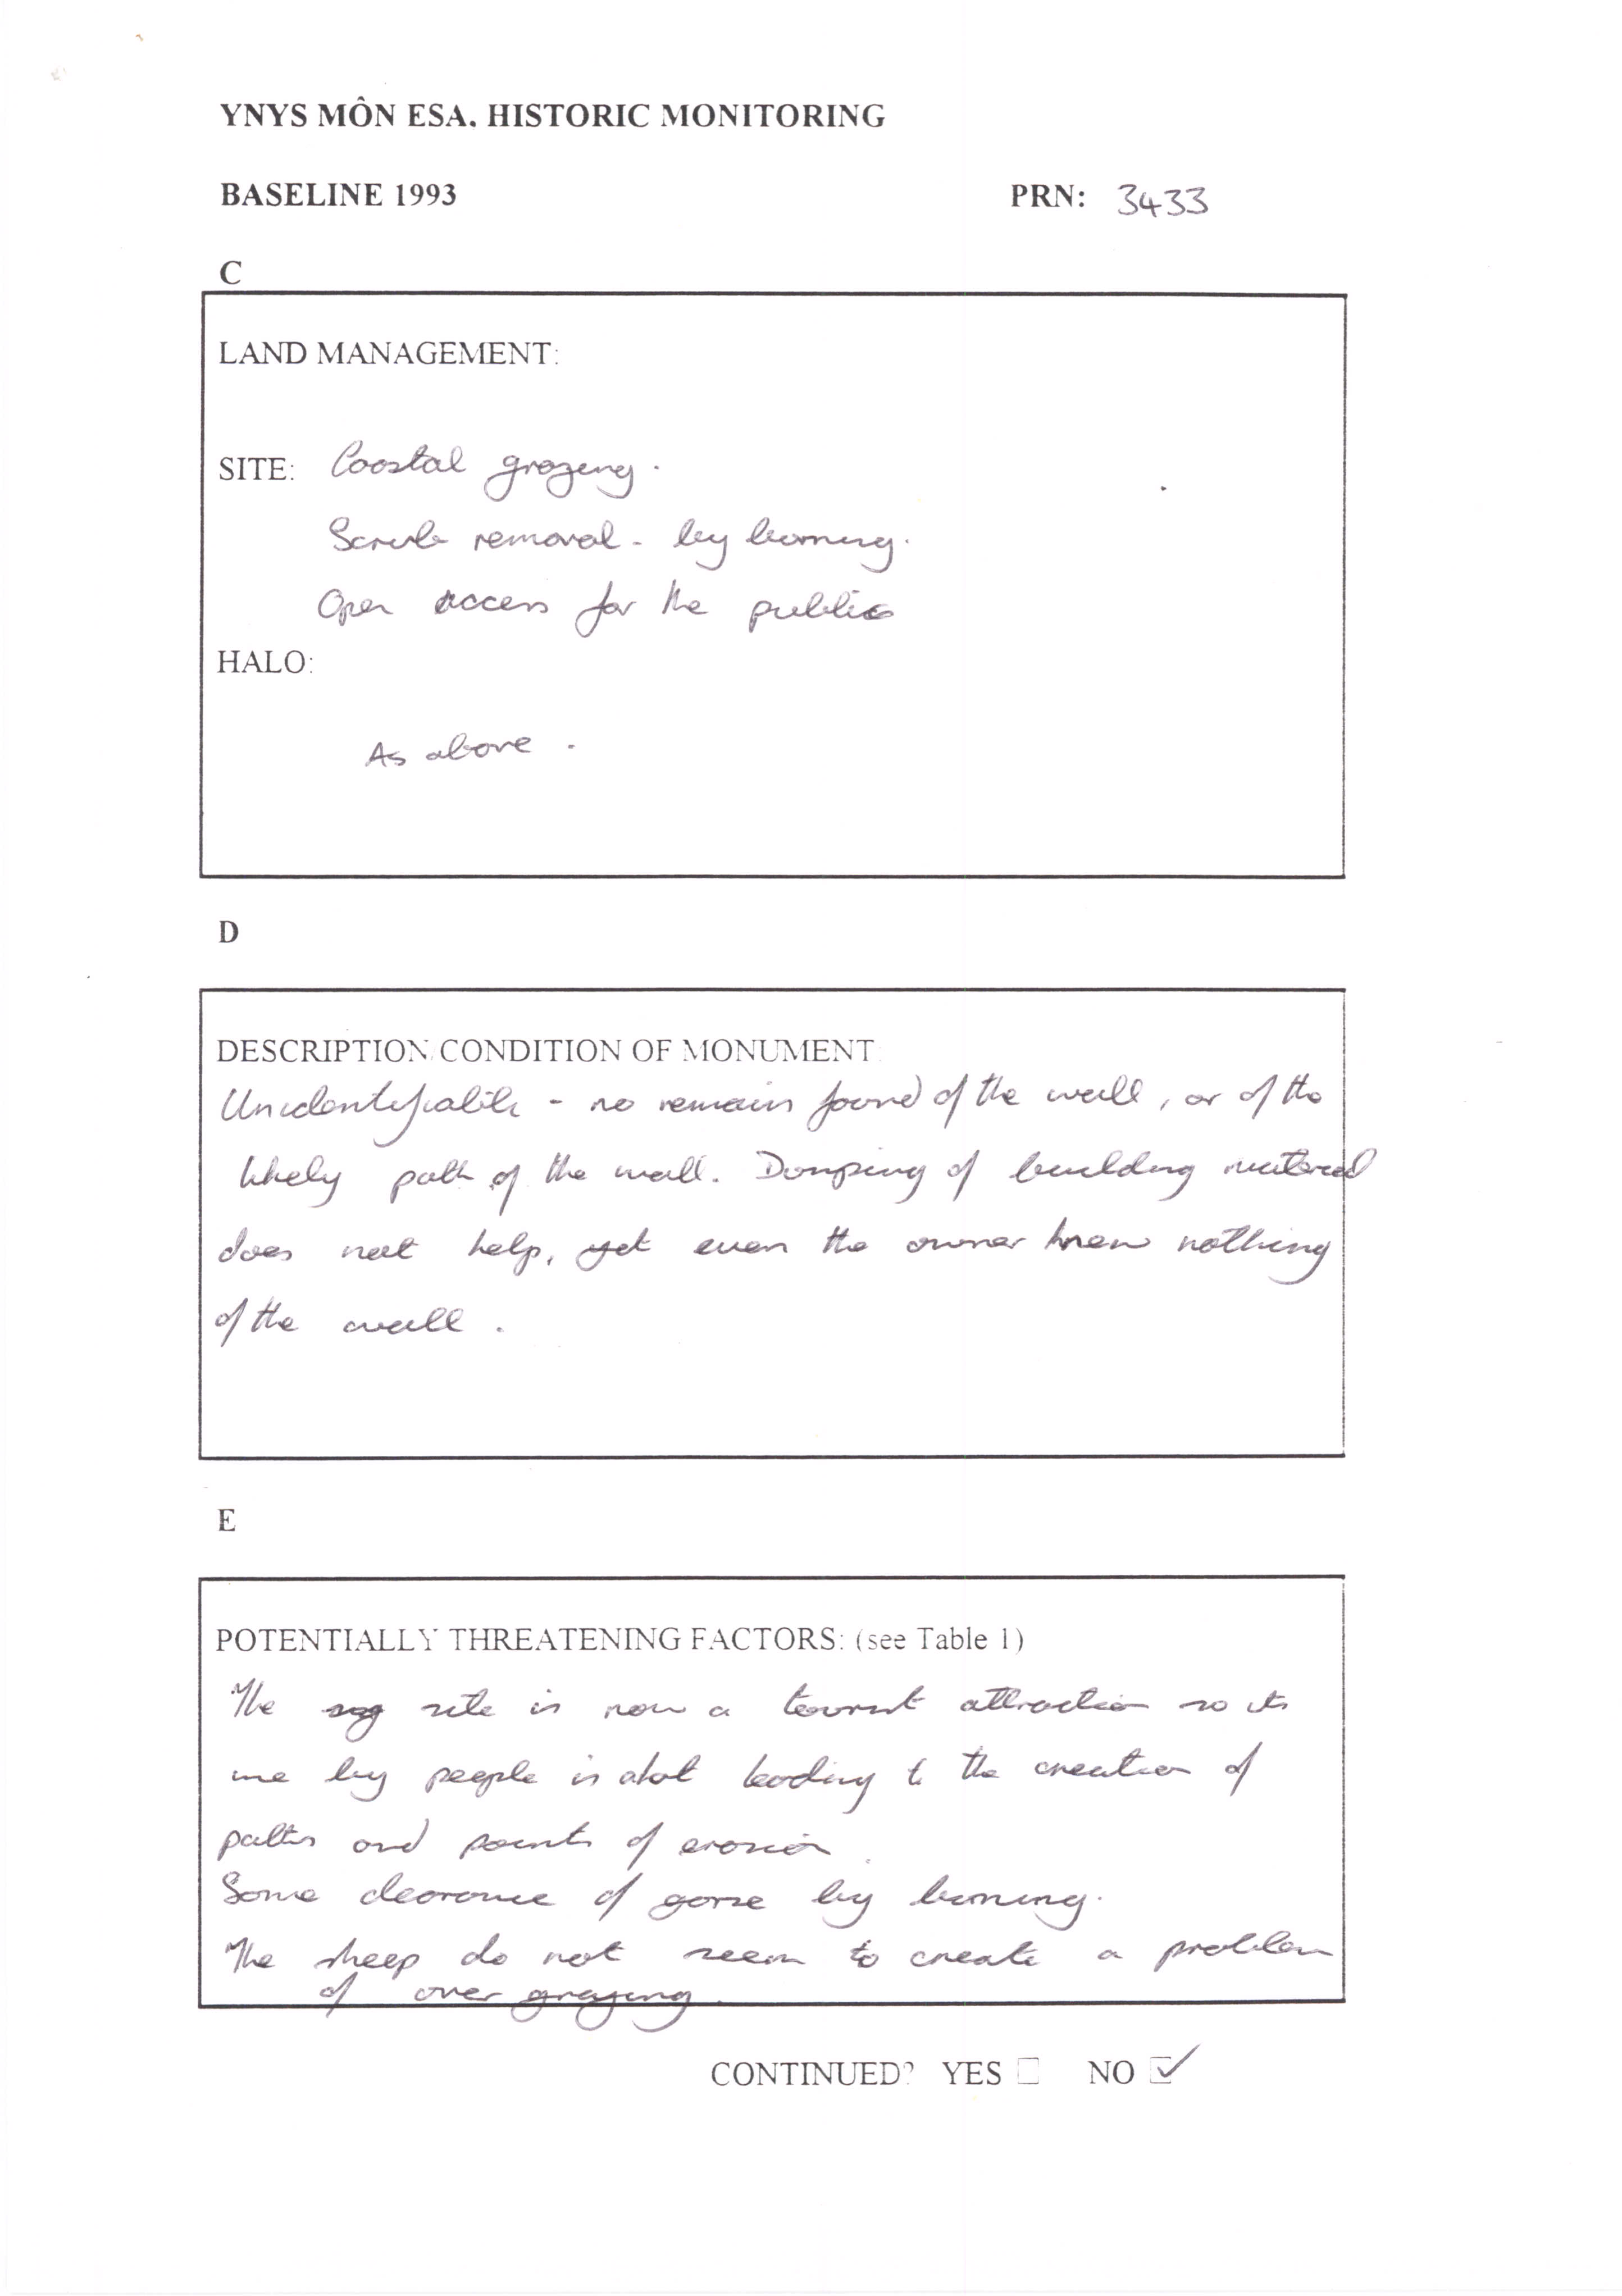 YNYS MÔN ESA. HISTORIC MONITORING
BASELINE 1993 PRN: 3433
C
LAND MANAGEMENT:
SITE: Coastal grazing.
Scrub removal - by burning.
Open access for the public
HALO:
As above .
D
DESCRIPTION/CONDITION OF MONUMENT
Unidentifiable - no remains found of the wall, or of the
likely path of the wall. Dumping of building material
does not help, yet even the owner knew nothing
of the wall .
E
POTENTIALLY THREATENING FACTORS: (see Table 1)
The site is now a tourist attraction so its
use by people is alot leading to the creation of
paths and points of erosion.
Some clearance of gorse by burning.
The sheep do not seem to create a problem
of over grazing.
CONTINUED? YES NO